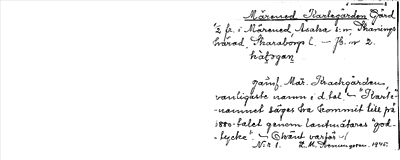 Märened Karlegården Gård
½ fr. i Märened, Asaka s:n Skånings
härad, Skaraborgs l. — Jb. nr 2.
jämf. Mär. Backgården,
vanligaste namn i d. tel. — "Karle"-
namnet säges ha kommit till på
1880-talet genom lantmätares "god-
tycke". — Okänt varför. —
Nr 1. 1945.